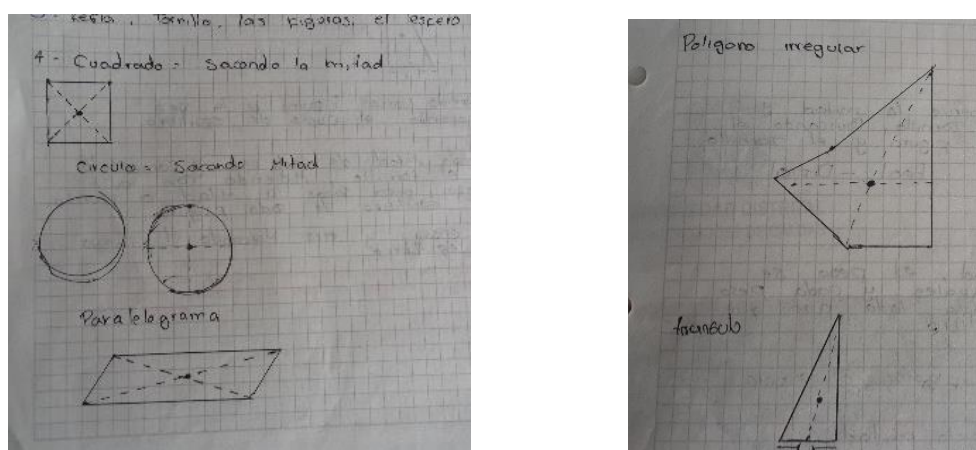 regla, Tornillo, las figuras, el
4 - Cuadrado = Sacando la mitad
Circulo = Sacando Mitad
Paralelograma
Poligono irregular